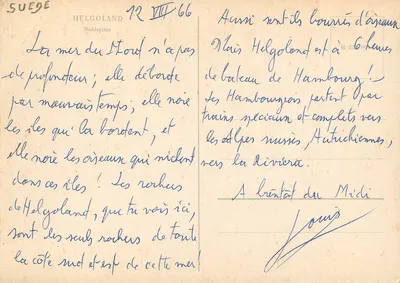 SUEDE
HELGOLAND
12 VIII 66
La mer du Nord n'a pas
de profondeur; elle déborde
par mauvais temps; elle noie
les îles qui la bordent, et
elle noie les oiseaux qui nichent
dans ces îles! Les rochers
de Helgoland, que tu vois ici,
sont les seuls rochers de toute
la côte sud et est de cette mer!
Aussi sont ils bourrés d'oiseaux
Mais Helgoland est à 6 heures
de bateau de Hambourg!
Les Hambourgeois partent par
trains spéciaux et complets vers
les Alpes suisses, Autrichiennes,
vers la Riviera.
A bientôt du Midi
Louis